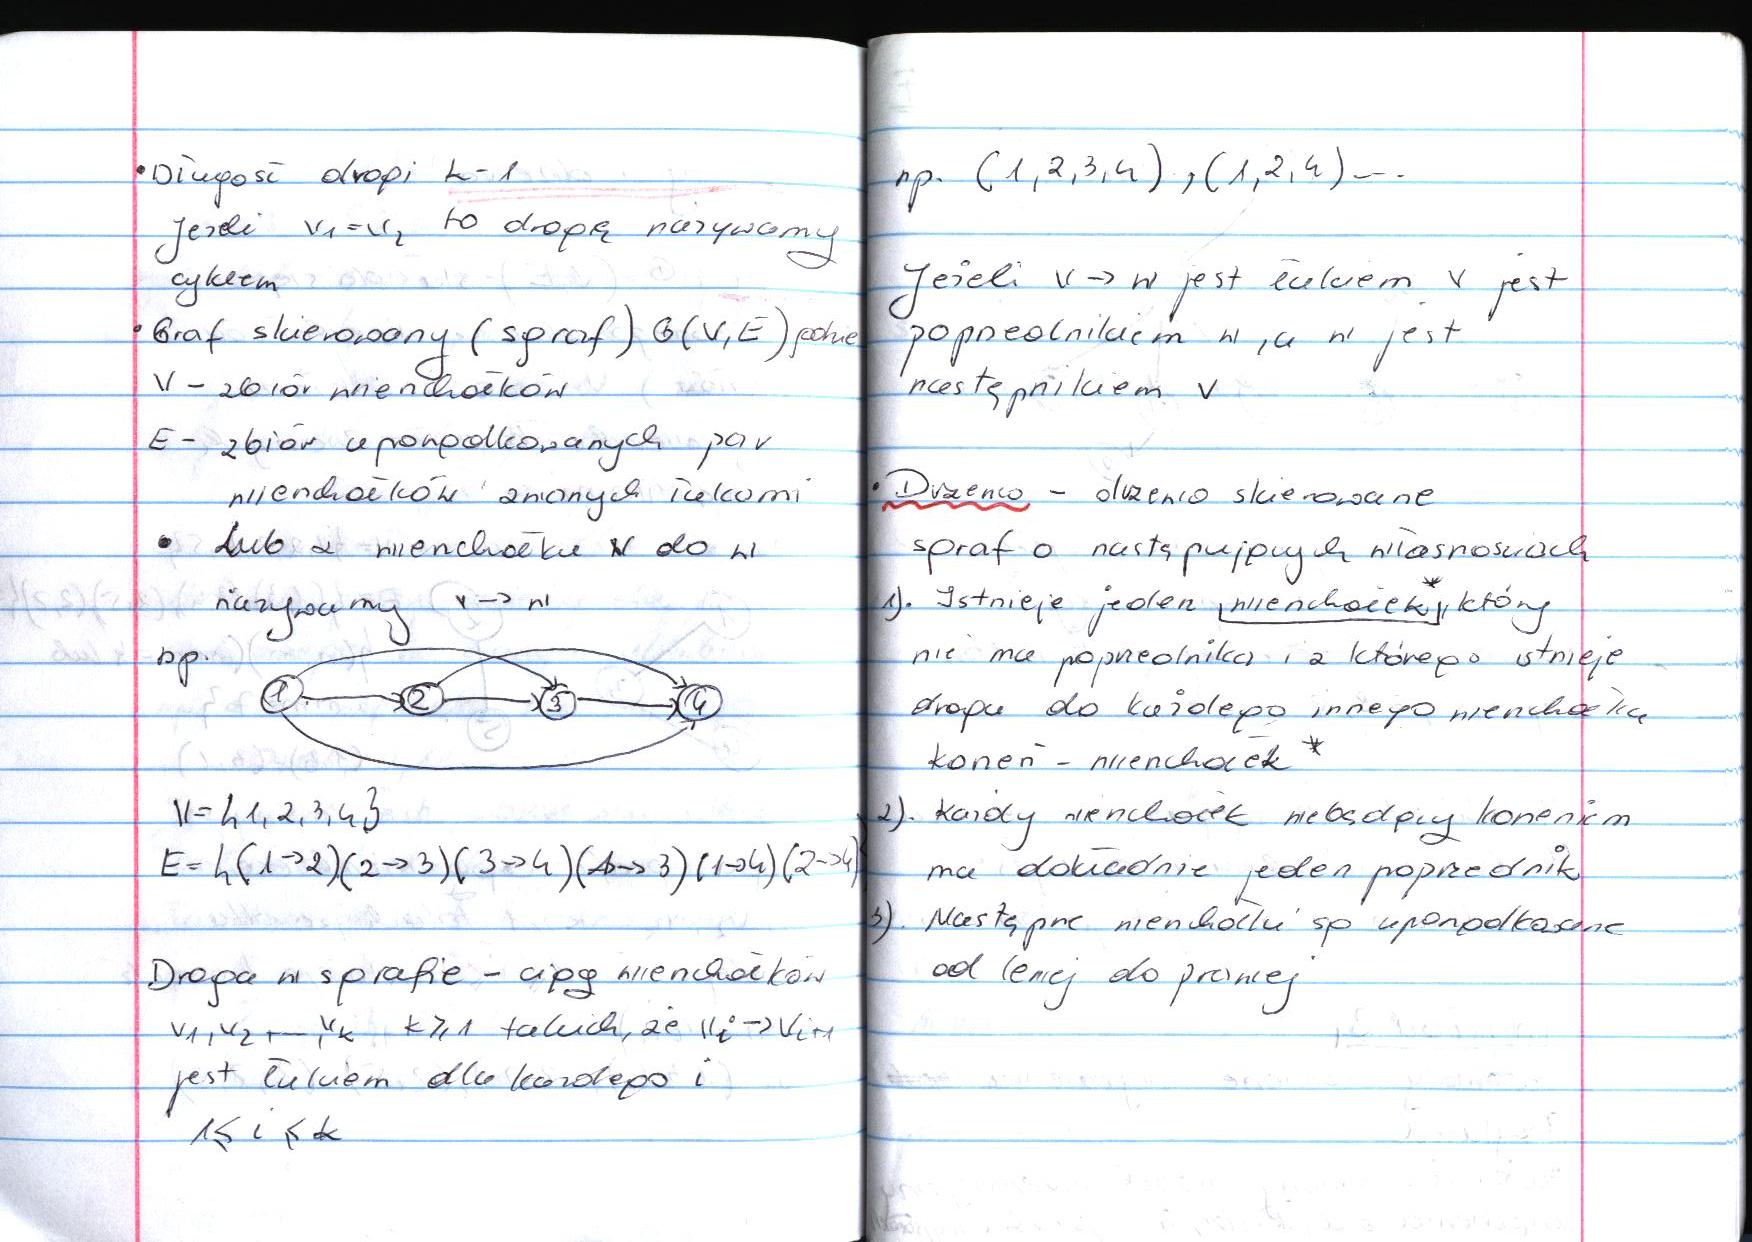 • Długość drogi k-1
Jeżeli v1=v2 to drogę nazywamy
cyklem
• Graf skierowany (sgraf) G(V,E) gdzie
V - zbiór wierzchołków
E - zbiór uporządkowanych par
wierzchołków zwanych łukami
• Łuk z wierzchołka v do w
nazywamy v → w
np.
1 2 3 4
V={1,2,3,4}
E={(1→2)(2→3)(3→4)(1→3)(1→4)(2→4)}
Droga w sgrafie - ciąg wierzchołków
v1,v2,...,vk k≥1 takich, że vi→vi+1
jest łukiem dla każdego i
1≤i≤k
np. (1,2,3,4),(1,2,4)...
Jeżeli v → w jest łukiem v jest
poprzednikiem w, a w jest
następnikiem v
• Drzewo - drzewo skierowane
sgraf o następujących własnościach
1). Istnieje jeden wierzchołek*, który
nie ma poprzednika i z którego istnieje
droga do każdego innego wierzchołka
korzeń - wierzchołek *
2). Każdy wierzchołek niebędący korzeniem
ma dokładnie jeden poprzednik
3). Następne wierzchołki są uporządkowane
od lewej do prawej